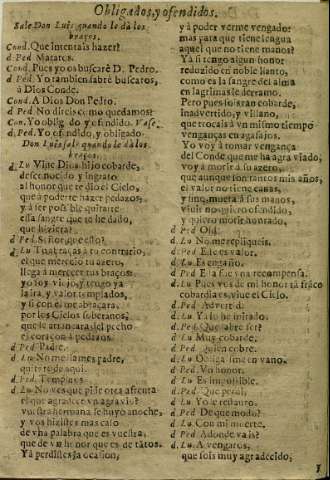 Obligados, y ofendidos.
Sale Don Luis quando le dà los
braços.
Cond. Que intentais hazer?
d. Ped. Mataros.
Cond. Pues yo os buscarè D. Pedro.
d. Ped. Yo tambien sabrè buscaros,
à Dios Conde.
Cond. A Dios Don Pedro.
d. Ped. No direis como quedamos?
Con. Yo oblig do y ofendido. Vase.
d. Ped. Yo ofendido, y obligado.
Don Luis sale quando le dà los
braços.
d. Lu. Vine Dios hijo cobarde,
desconocido y ingrato
al honor que te dio el Cielo,
que à poderte hazer pedaços,
y à ser possible quitarte
essa sangre que te he dado,
que hiziera?
d. Ped. Señor que esso?
d. Lu. Tu abraças à tu contrario,
el que merecio tu azero,
llega à merecer tus braços:
yo soy viejo, y tengo ya
la ira, y valor templados,
y si conmigo abraçara,
por los Cielos soberanos,
que le arrancara del pecho
el coraçon à pedaços.
d. Ped. Padre.
d. Lu. No me llames padre,
quitate de aqui.
d. Ped. Templaos.
d. Lu. No ves que pide otra afrenta
el que agradece vn agravio?
vuestra hermana se huyo anoche,
y vos hizistes mas caso
de vna palabra que es vuestra,
que de vn honor que es de tãtos.
Ya perdistes la ocasion,
y à poder verme vengado:
mas para que tiene lengua
aquel que no tiene manos?
Ya si tengo algun honor
reduzido en noble llanto,
como es la sangre del alma
en lagrimas le derramo.
Pero pues sois tan cobarde,
inadvertido, y villano,
que trocais à vn mismo tiempo
venganças en agasajos,
Yo voy à tomar vengança
del Conde que me ha agraviado,
voy à morir à su azero,
que aunque son tantos mis años,
el valor no tiene canas,
y si no, muera à sus manos,
viuir no quiero ofendido,
y quiero morir honrado.
d. Ped. Oíd.
d. Lu. No me repliqueis.
d. Ped. Esse es valor.
d. Lu. Es engaño.
d. Ped. Essa fue vna recompensa.
d. Lu. Pues vos de mi honor tã frãco
cobardia es, viue el Cielo.
d. Ped. Advertid.
d. Lu. Ya lo he mirado.
d. Ped. Que abre ser?
d. Lu. Muy cobarde.
d. Ped. Quien cobre.
d. Lu. Obliga sme en vano.
d. Ped. Vn honor.
d. Lu. Es impossible.
d. Ped. Que perdi,
d. Lu. Yo le restauro.
d. Ped. De que modo?
d. Lu. Con mi muerte.
d. Ped. Adonde vais?
d. Lu. A vengaros,
que sois muy agradecido,